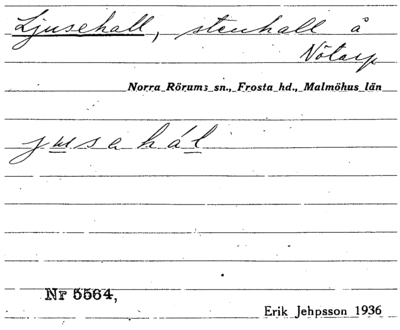 Ljusehall, stenhall å
Nötarp
Norra Rörums sn., Frosta hd., Malmöhus län
jusahál
Nr 5564,
Erik Jehpsson 1936